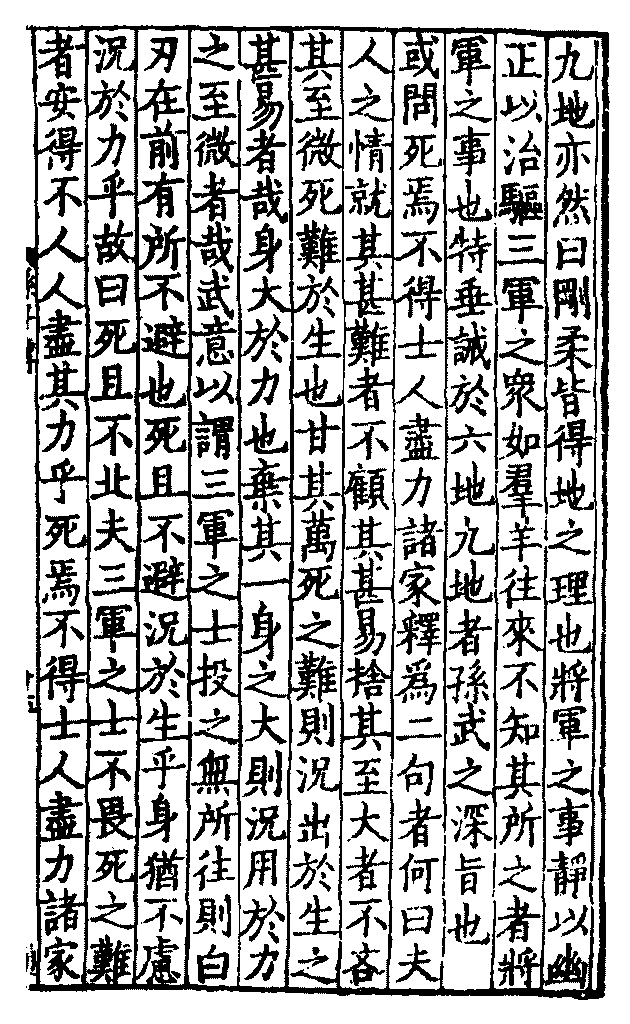 九地亦然曰剛柔皆得地之理也將軍之事靜以幽
正以治驅三軍之衆如羣羊往來不知其所之者將
軍之事也特垂誡於六地九地者孫武之深旨也
或問死焉不得士人盡力諸家釋爲二句者何曰夫
人之情就其甚難者不顧其甚易捨其至大者不吝
其至微死難於生也甘其萬死之難則況出於生之
甚易者哉身大於力也棄其一身之大則況用於力
之至微者哉武意以謂三軍之士投之無所往則白
刃在前有所不避也死且不避況於生乎身猶不慮
況於力乎故曰死且不北夫三軍之士不畏死之難
者安得不人人盡其力乎死焉不得士人盡力諸家